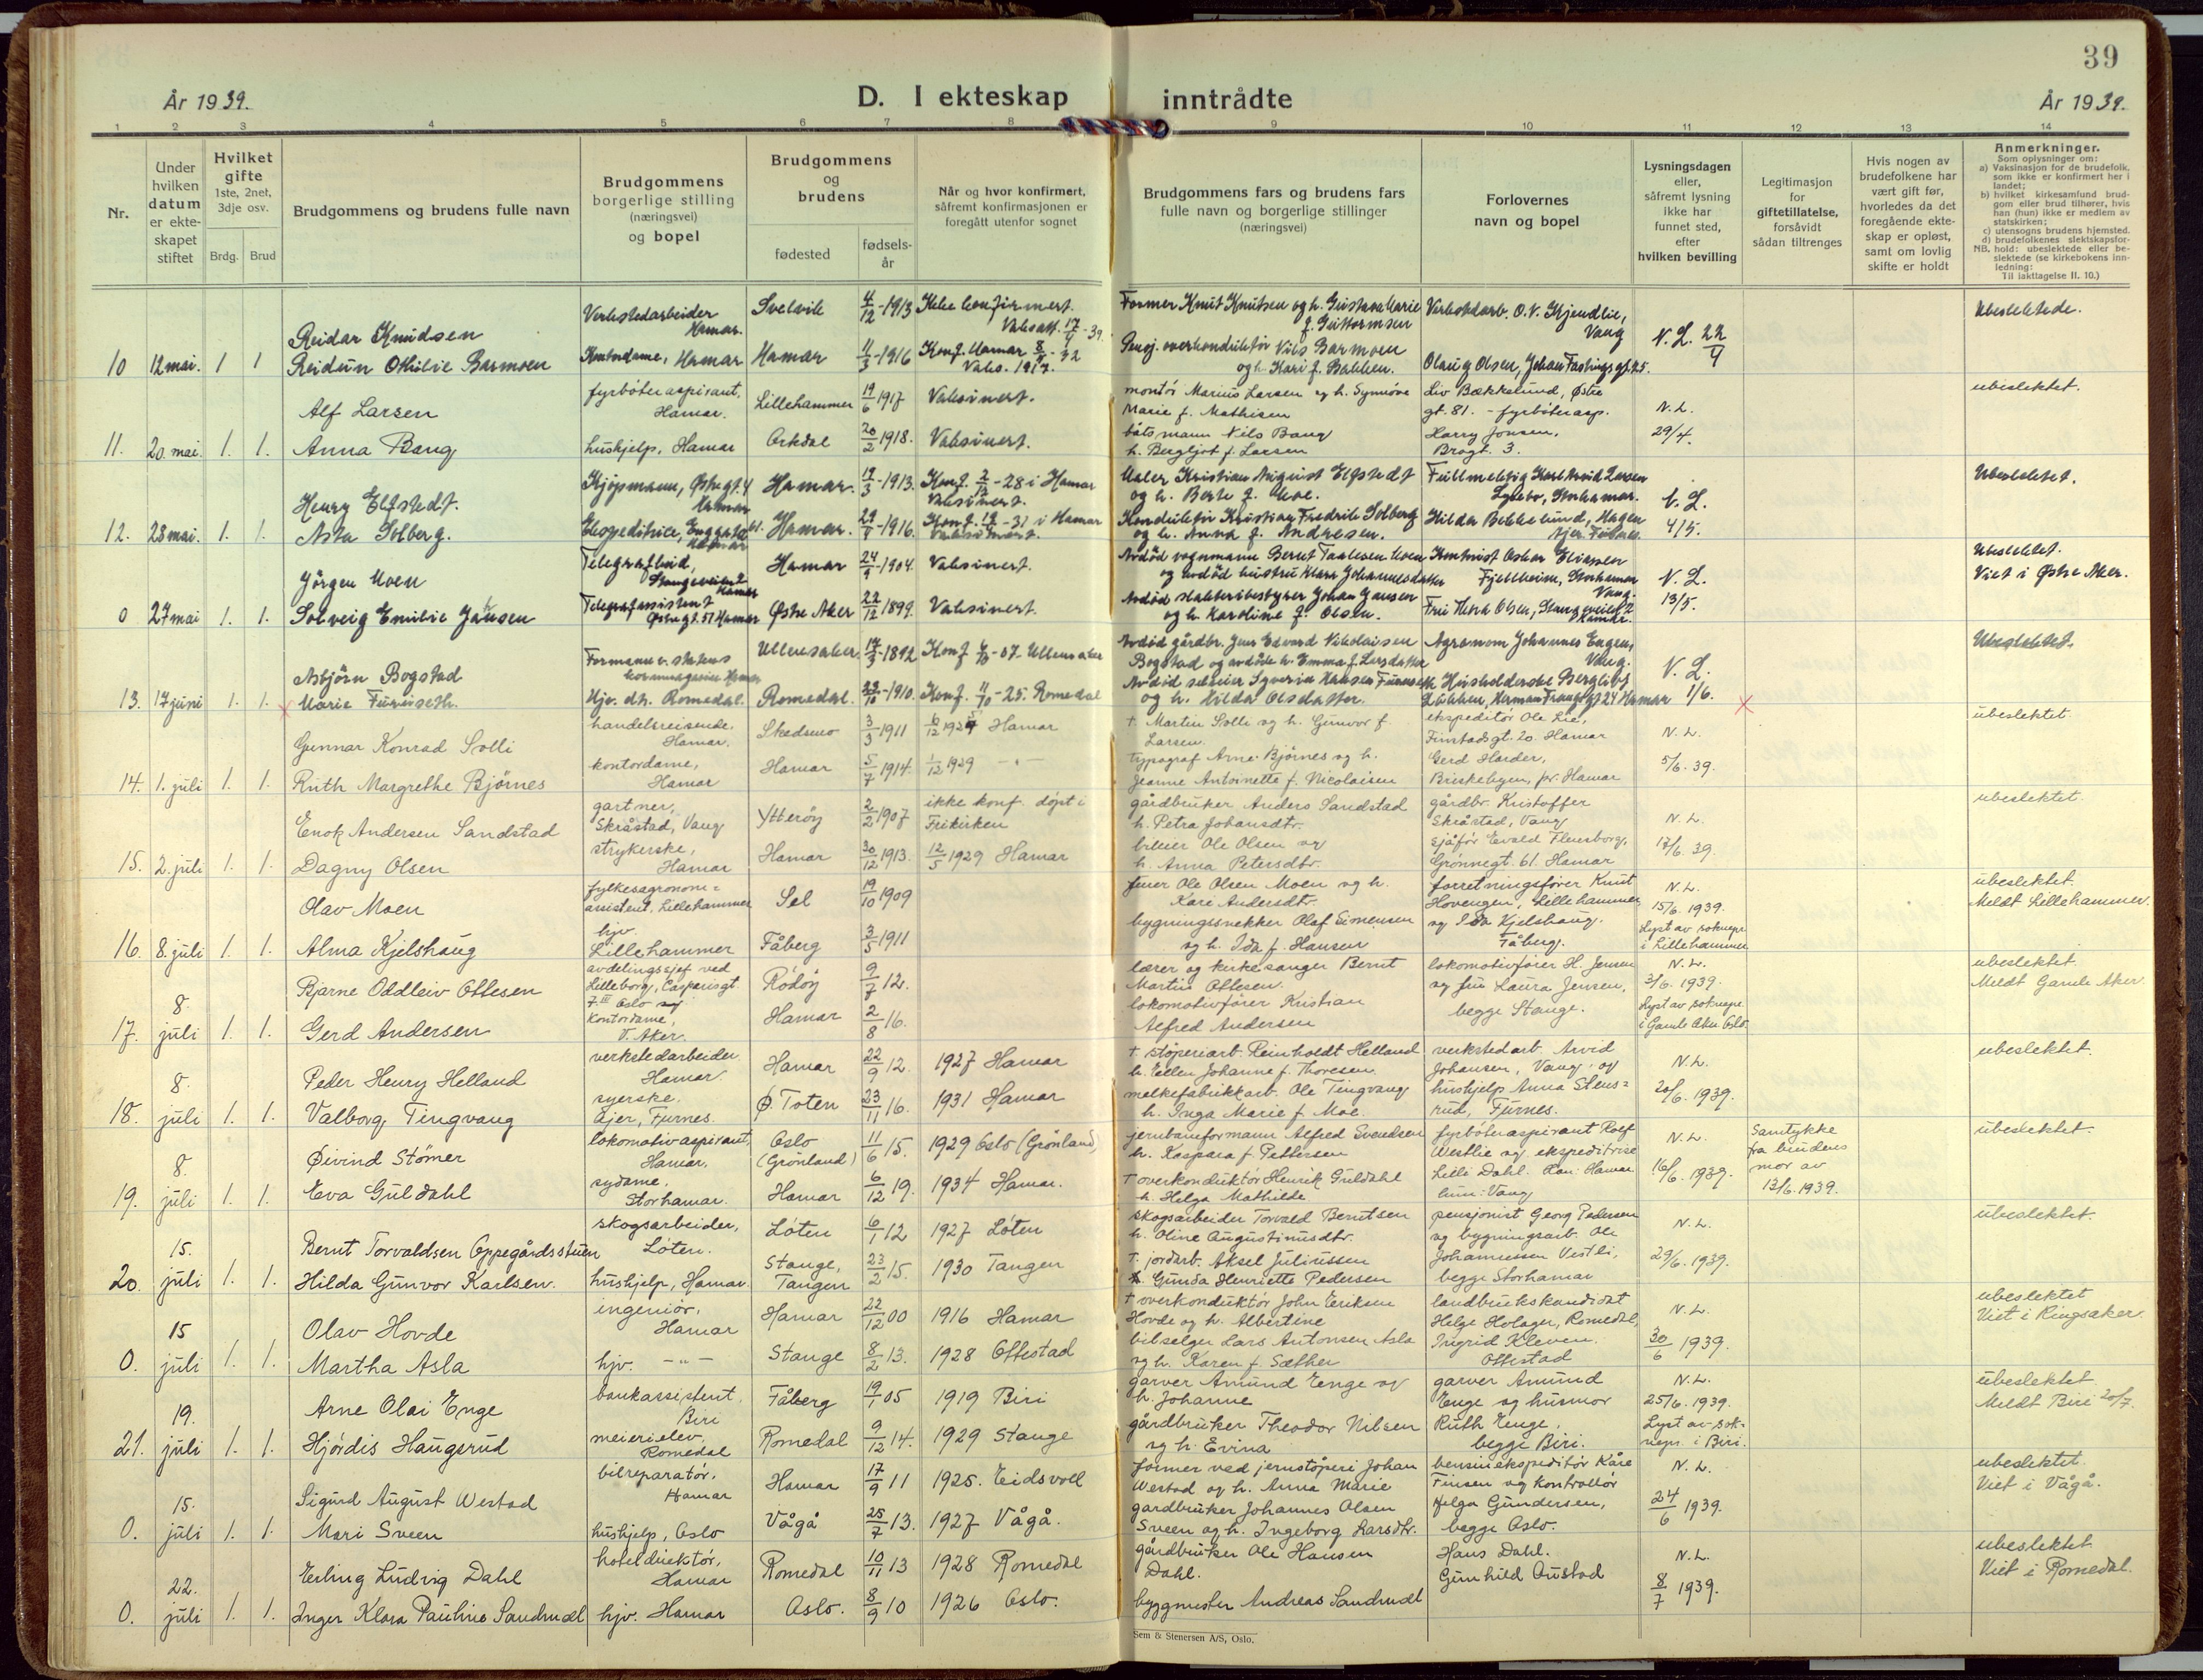 39
År 1939.
D. I ekteskap inntrådte
År 1939.
1 2 3 4 5 6 7 8 9 10 11 12 13 14
Nr.
Under hvilken datum er ekteskapet stiftet
Hvilket gifte 1ste, 2net, 3dje osv.
Brdg. Brud
Brudgommens og brudens fulle navn
Brudgommens borgerlige stilling (næringsvei) og bopel
Brudgommens og brudens
fødested
fødselsår
Når og hvor konfirmert, såfremt konfirmasjonen er foregått utenfor sognet
Brudgommens fars og brudens fars fulle navn og borgerlige stillinger (næringsvei)
Forlovernes navn og bopel
Lysningsdagen eller, såfremt lysning ikke har funnet sted, efter hvilken bevilling
Legitimasjon for giftetillatelse, forsåvidt sådan tiltrenges
Hvis nogen av brudefolkene har vært gift før, hvorledes da det foregående ekteskap er opløst, samt om lovlig skifte er holdt
Anmerkninger.
Som oplysninger om:
a) Vaksinasjon for de brudefolk, som ikke er konfirmert her i landet;
b) hvilket kirkesamfund brudgom eller brud tilhører, hvis han (hun) ikke er medlem av statskirken;
c) utensogns brudens hjemsted.
d) brudefolkenes slektskapsforhold: ubeslektede eller beslektede (se kirkebokens innledning:
NB. Til iakttagelse II. 10.)
Reidar Knudsen Verkstedarbeider Hamar. Svelvik 4/12-1913 Ikke konfirmert. Former Knut Knutsen og h. Gustava Marie f. Guttormsen Verkstedarb. O.V. Kjendlie, Vang N.L. 22/4 Ubeslektede.
10 12 mai. 1 1 Reidun Othilie Barmoen Kontordame, Hamar Hamar 11/3-1916 Konf. Hamar Vaks. 1917. Pensj. overkonduktör Nils Barmoen og h. Kari f. Bakken. Olaug Olsen, Johan Fastings gt. 25.
Alf Larsen fyrböteraspirant, Hamar. Lillehammer 19/6 1917 Vaksinert. montör Marius Larsen og h. Synnöve Marie f. Mathisen Liv Bækkelund, Östre gt. 81. - fyrböterasp. N.L. ubeslektet.
11. 20. mai. 1. 1. Anna Bang hushjelp, Hamar Orkdal 20/2 1918. Vaksinert. båtsmann Nils Bang h. Bergljot f. Larsen Harry Jonsen, Brogt. 3. 29/4.
Henry Elfstedt. Kjöpmann, Östregt. 4 Hamar Hamar. 19/3-1913. Konf. 2/12-28 i Hamar Vaksinert. Maler Kristian August Elfstedt og h. Berte f. Moe. Fullmektig Karl Arvid Larsen Storhamar. N.L. Ubeslektet.
12. 28 mai. 1. 1. Asta Solberg. Ekspeditrice, Hamar Hamar. 1916. Konf. -31 i Hamar Vaksinert. Konduktör Kristian Fredrik Solberg og h. Anna f. Andresen. Hilda Bekkelund, Hagen Ajer, Furnes. 4/5.
Jörgen Moen Telegrafbud, Stangeveien 2 Hamar Hamar 24/9-1904. Vaksinert. Avdöd vognmann Bernt Taalesen Moen og avdöd hustru Klara Johannesdatter Kontorist Oskar Eliassen Fjellheim, Storhamar Vang. N.L. Ubeslektet. Viet i Östre Aker.
0 27 mai 1. 1. Solveig Emilie Jansen Telegrafassistent Östregt. 51 Hamar Östre Aker 22/12 1899. Vaksinert. Avdöd slakteribestyrer Johan Jansen og h. Karoline f. Olsen. Fru Thora Olsen, Stangeveien 2 Hamar. 13/5.
Asbjörn Bogstad Formann v. statens kornmagasin Hamar Ullensaker. 17/3-1892 Konf. -07 Ullensaker Avdöd gårdbr. Jens Edvard Nikolaisen Bogstad og avdöde h. Emma f. Larsdatter Agronom Johannes Engen, Vang. N.L. Ubeslektet.
13. 17 juni 1. 1. Marie Furuseth. Hjv. dtr. Romedal. Romedal. 23/10-1910. Konf. 11/10-25. Romedal Avdöd selveier Syverin Hansen Furuseth og h. Hilda Olsdatter. Husholderske Bergliot Lökken, Herman Franggt 24 Hamar 1/6.
Gunnar Konrad Solli handelsreisende. Hamar. Skedsmo 3/3 1911 6/12 1925 Hamar † Martin Solli og h. Gunvor f. Larsen. ekspeditör Ole Lie, Finstadsgt. 20. Hamar N.L. ubeslektet.
14. 1. juli 1. 1. Ruth Margrethe Björnes kontordame, Hamar Hamar 5/7 1914. 1/12 1929 - " - typograf Arne Björnes og h. Jeanne Antoinette f. Nicolaisen Gerd Harder, Briskebyen, pr. Hamar 5/6. 39.
Enok Andersen Sandstad gartner, Skråstad, Vang Ytteröy 2/2 1907 ikke konf. döpt i Frikirken gårdbruker Anders Sandstad h. Petra Johansdtr. gårdbr. Kristoffer Skråstad, Vang N.L. ubeslektet.
15. 2. juli 1. 1. Dagny Olsen strykerske, Hamar Hamar 30/12 1913. 12/5 1929 Hamar bileier Ole Olsen og h. Anna Petersdtr. sjåför Evald Flensborg, Grönnegt. 61. Hamar 17/6. 39.
Olav Moen fylkesagronomassistent, Lillehammer Sel 19/10 1909 Ole Olsen Moen og h. Kari Andersdtr. forretningsförer Knut Hovengen, Lillehammer N.L. 15/6. 1939. ubeslektet. Meldt Lillehammer.
16. 8. juli 1. 1. Alma Kjelshaug hjv. Lillehammer Fåberg 3/5 1911 bygningssnekker Olaf Simensen og h. Ida f. Hansen og Ida Kjelshaug. Fåberg. Lyst av sokнepr. i Lillehammer
Bjarne Oddleiv Ottesen avdelingssjef ved Lilleborg, Casparisgt 7 III Oslo og Rödöy 9/7 12. lærer og kirkesanger Bernt Martin Ottesen. lokomotivförer H. Jensen og fru Laura Jensen, begge Stange. N.L. 3/6. 1939. ubeslektet Meldt Gamle Aker.
17. 8. juli 1. 1. Gerd Andersen kontordame, V. Aker. Hamar 2/8 16. lokomotivförer Kristian Alfred Andersen Lyst av soknepr. i Gamle Aker Oslo.
Peder Henry Helland verkstedarbeider Hamar. Hamar 22/9 12. 1927 Hamar † støperiarb. Reinholdt Helland h. Ellen Johanne f. Thoresen. verkstedarb. Arvid Johansen, Vang, og N.L. ubeslektet.
18. 8. juli 1. 1. Valborg Tingvang syerske, Ajer, Furnes. Ø. Toten 23/11 16. 1931 Hamar melkefabrikkarb. Ole Tingvang h. Inga Marie f. Moe. hushjelp Anna Stensrud, Furnes. 20/6. 1939.
Øivind Stömer lokomotivaspirant, Hamar. Oslo (Grönland) 11/6 15. 1929 Oslo (Grönland) jernbaneformann Alfred Svendsen h. Kaspara f. Pettersen fyrböteraspirant Rolf Westlie og ekspeditrise N.L. Samtykke fra brudens mor av 13/6. 1939. ubeslektet.
19. 8. juli 1. 1. Eva Guldahl sydame. Storhamar. Hamar 6/12 19. 1934 Hamar. † overkonduktör Henrik Guldahl h. Helga Mathilde Lilli Dahl. Han: Hamar hun: Vang 16/6. 1939.
Bernt Torvaldsen Oppegårdsstuen skogsarbeider, Löten. Löten 6/1 12 1927 Löten skogsarbeider Torvald Berntsen h. Oline Augustinusdtr. pensjonist Georg Pedersen og bygningsarb. Ole N.L. ubeslektet.
20. 15. juli 1. 1. Hilda Gunvor Karlsen. hushjelp, Hamar. Stange, Tangen 23/2 15. 1930 Tangen † jordarb. Aksel Juliussen Gunda Henriette Pedersen Johannessen Vestli, begge Storhamar 29/6. 1939.
Olav Hovde ingeniör, Hamar Hamar 22/12 00 1916 Hamar † overkonduktör John Eriksen Hovde og h. Albertine landbrukskandidat Helge Holager, Romedal, N.L. ubeslektet Viet i Ringsaker.
0. 15 juli 1. 1. Martha Asla hjv. - " - Stange 8/2 13. 1928 Ottestad bilselger Lars Antonsen Asla og h. Karen f. Sæther Ingrid Kleven. Ottestad 30/6 1939.
Arne Olai Enge bankassistent, Biri Fåberg 19/1 05 1919 Biri garver Amund Enge og h. Johanne garver Amund Enge og husmor N.L. 25/6. 1939. ubeslektet Meldt Biri 20/7.
21. 19. juli 1. 1. Hjördis Haugerud meierielev. Romedal Romedal 9/12 14. 1929 Stange gårdbruker Theodor Nilsen og h. Evina Ruth Enge, begge Biri. Lyst av soknepr. i Biri.
Sigurd August Westad bilreparatör. Hamar Hamar 17/9 11 1925. Eidsvoll former ved jernstöperi Johan Westad og h. Anna Marie bensinekspeditör Kåre Finsen og kontrollör N.L. ubeslektet. Viet i Vågå.
0. 15. juli 1. 1. Mari Sveen hushjelp, Oslo Vågå 25/7 13. 1927 Vågå. gardbruker Johannes Olsen Sveen og h. Ingeborg Larsdtr. Helga Gundersen, begge Oslo. 24/6 1939.
Erling Ludvig Dahl hoteldirektör, Hamar Romedal 10/11 13 1928 Romedal gårdbruker Ole Hansen Dahl. Hans Dahl. N.L. ubeslektet Viet i Romedal.
0. 22. juli 1. 1. Inger Klara Pauline Sandrudl hjv. Hamar Oslo. 8/9 10 1926 Oslo. byggmester Andreas Sandrudl Gunhild Austad 8/7 1939.
Sem & Stenersen A/S, Oslo.